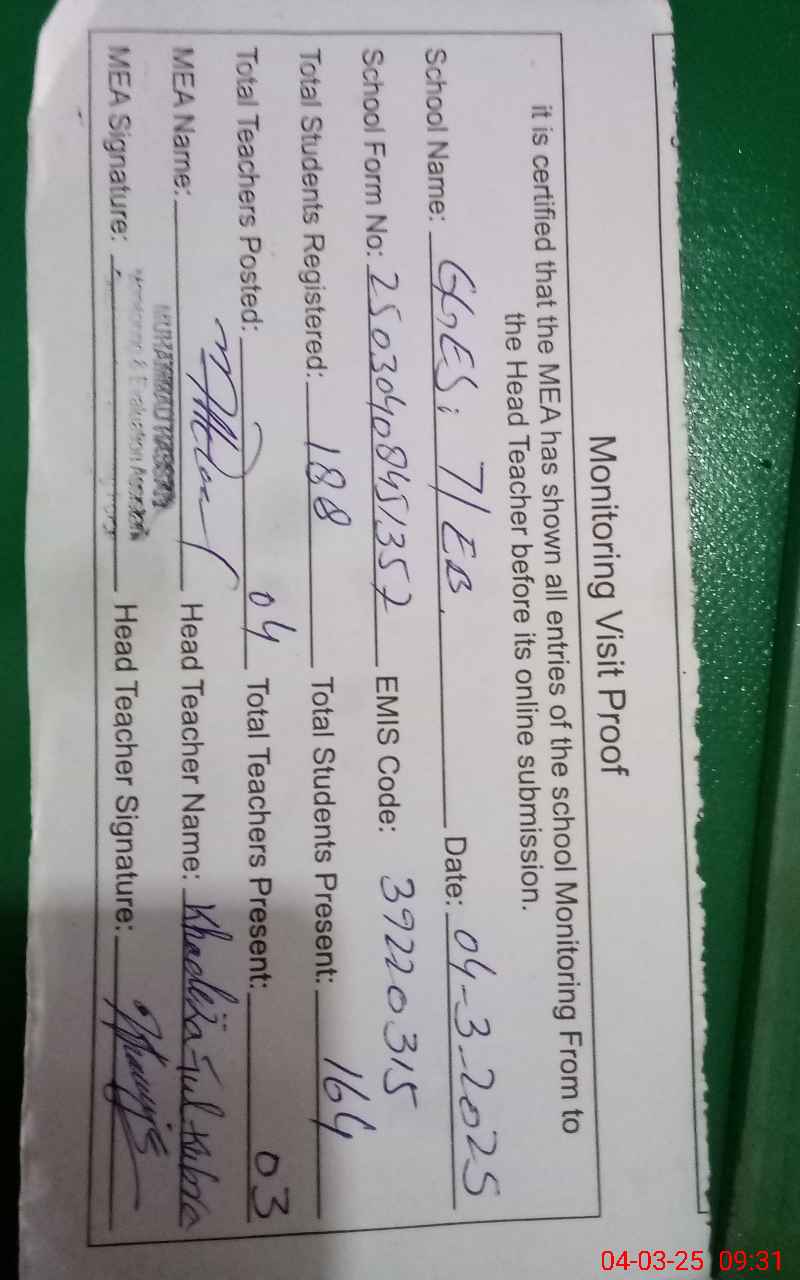 Monitoring Visit Proof
it is certified that the MEA has shown all entries of the school Monitoring From to
the Head Teacher before its online submission.
School Name: GGES; 71 EB. Date: 04-3-2025
School Form No: 25030408451352 EMIS Code: 39220315
Total Students Registered: 188 Total Students Present: 164
Total Teachers Posted: 04 Total Teachers Present: 03
MEA Name: Head Teacher Name: Khadeja-tul-kubra
MUHAMMAD HASSAN
Monitoring & Evaluation Assistant
MEA Signature: Head Teacher Signature:
04-03-25 09:31